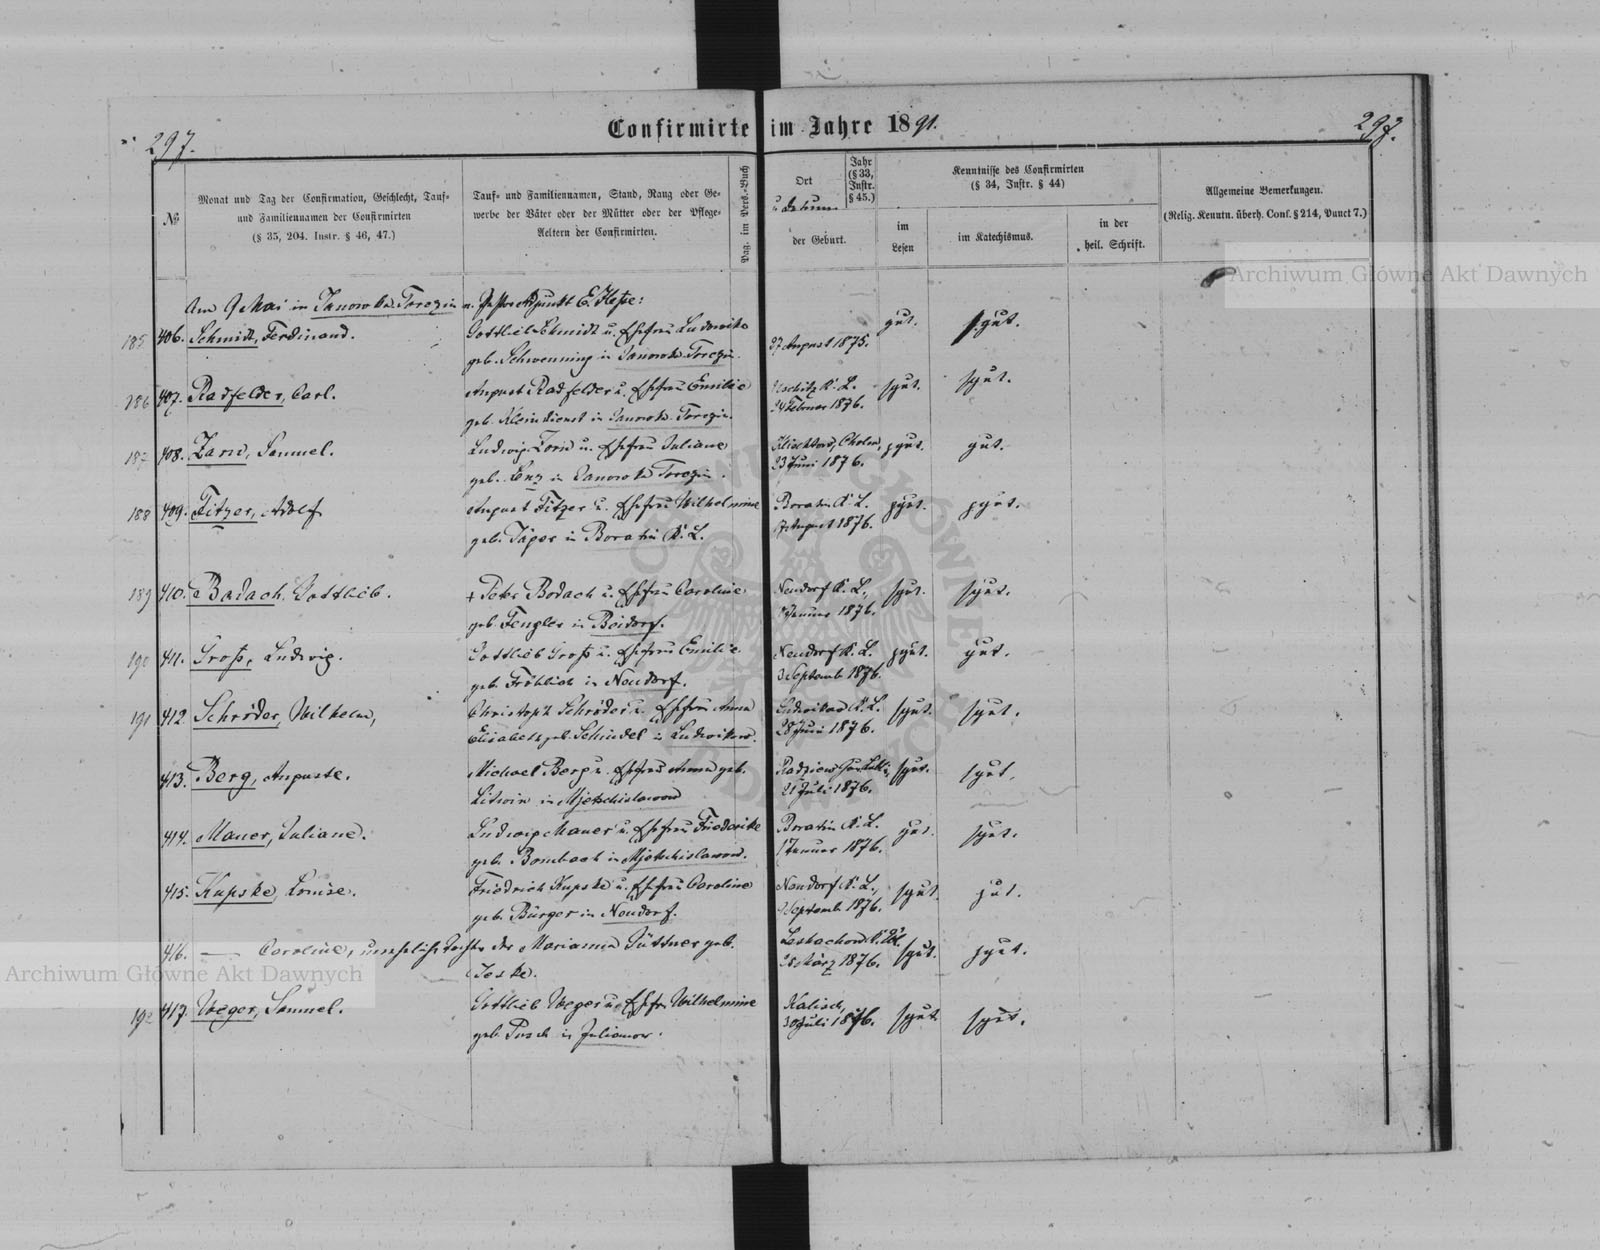 297.
Confirmirte im Jahre 1891.
297.
№
Monat und Tag der Confirmation, Geschlecht, Tauf-
und Familiennamen der Confirmirten
(§ 35, 204. Instr. § 46, 47.)
Tauf- und Familiennamen, Stand, Rang oder Ge-
werbe der Väter oder der Mütter oder der Pflege-
Aeltern der Confirmirten.
Pag. im Pers.-Buch
Ort
u. Datum
der Geburt.
Jahr
(§ 33,
Instr.
§ 45.)
Kenntnisse des Confirmirten
(§ 34, Instr. § 44)
im
Lesen
im Katechismus.
in der
heil. Schrift.
Allgemeine Bemerkungen.
(Relig. Kenntn. überh. Conf. § 214, Punct 7.)
Archiwum Główne Akt Dawnych
Am 9 Mai in Janowka Torczin v. Pastor Adjunkt E. Hesse:
185 406. Schmidt, Ferdinand.
Gottlieb Schmidt u. Ehefrau Ludowika
geb. Schwenning in Janowka Torczin.
27 August 1875.
gut. s. gut.
186 407. Radfelder, Carl.
August Radfelder u. Ehefrau Emilie
geb. Kleindienst in Janowka Torczin.
K. L.
24 Februar 1876.
s gut. s gut.
187 408. Zarn, Samuel.
Ludwig Zorn u. Ehefrau Juliane
geb. Enz in Janowka Torczin.
Cholm,
23 Juni 1876.
s gut. gut.
188 409. Fitzer, Adolf
August Fitzer u. Ehefrau Wilhelmine
geb. Jäger in Boratin K. L.
Boratin K. L.
17 August 1876.
s gut. s gut.
189 410. Badach, Gottlieb.
† Peter Bodach u. Ehefrau Caroline
geb. Fengler in Beidorf.
Neudorf K. L.,
Januar 1876.
s gut. s gut.
190 411. Gross, Ludwig.
Gottlieb Gross u. Ehefrau Emilie
geb. Fröhlich in Neudorf.
Neudorf K. L.
3 Septemb. 1876.
s gut. gut.
191 412. Schröder, Wilhelm,
Christoph Schröder u. Ehefrau Anna
Elisabeth geb. Schindel in Ludwikow.
Ludwikow K. L.
28 Juni 1876.
s gut. s gut.
413. Berg, Auguste.
Michael Berg u. Ehefrau Anna geb.
Litwin in Mjetschislawow
21 Juli 1876.
s gut. s gut.
414. Mauer, Juliane.
Ludwig Mauer u. Ehefrau Friederike
geb. Bombach in Mjetschislawow.
Boratin K. L.
1 Januar 1876.
gut. s gut.
415. Kupske, Louise.
Friedrich Kupske u. Ehefrau Caroline
geb. Bürger in Neudorf.
Neudorf K. L.,
9 Septemb. 1876.
s gut. gut.
416. — Caroline, uneheliche Tochter der Marianna Büttner geb.
Jeske.
28 März 1876.
s gut. s gut.
Archiwum Główne Akt Dawnych
192 417. Weger, Samuel.
Gottlieb Weger u. Ehefr. Wilhelmine
geb. Pusch in Julianow.
Kalisch,
30 Juli 1876.
s gut. s gut.